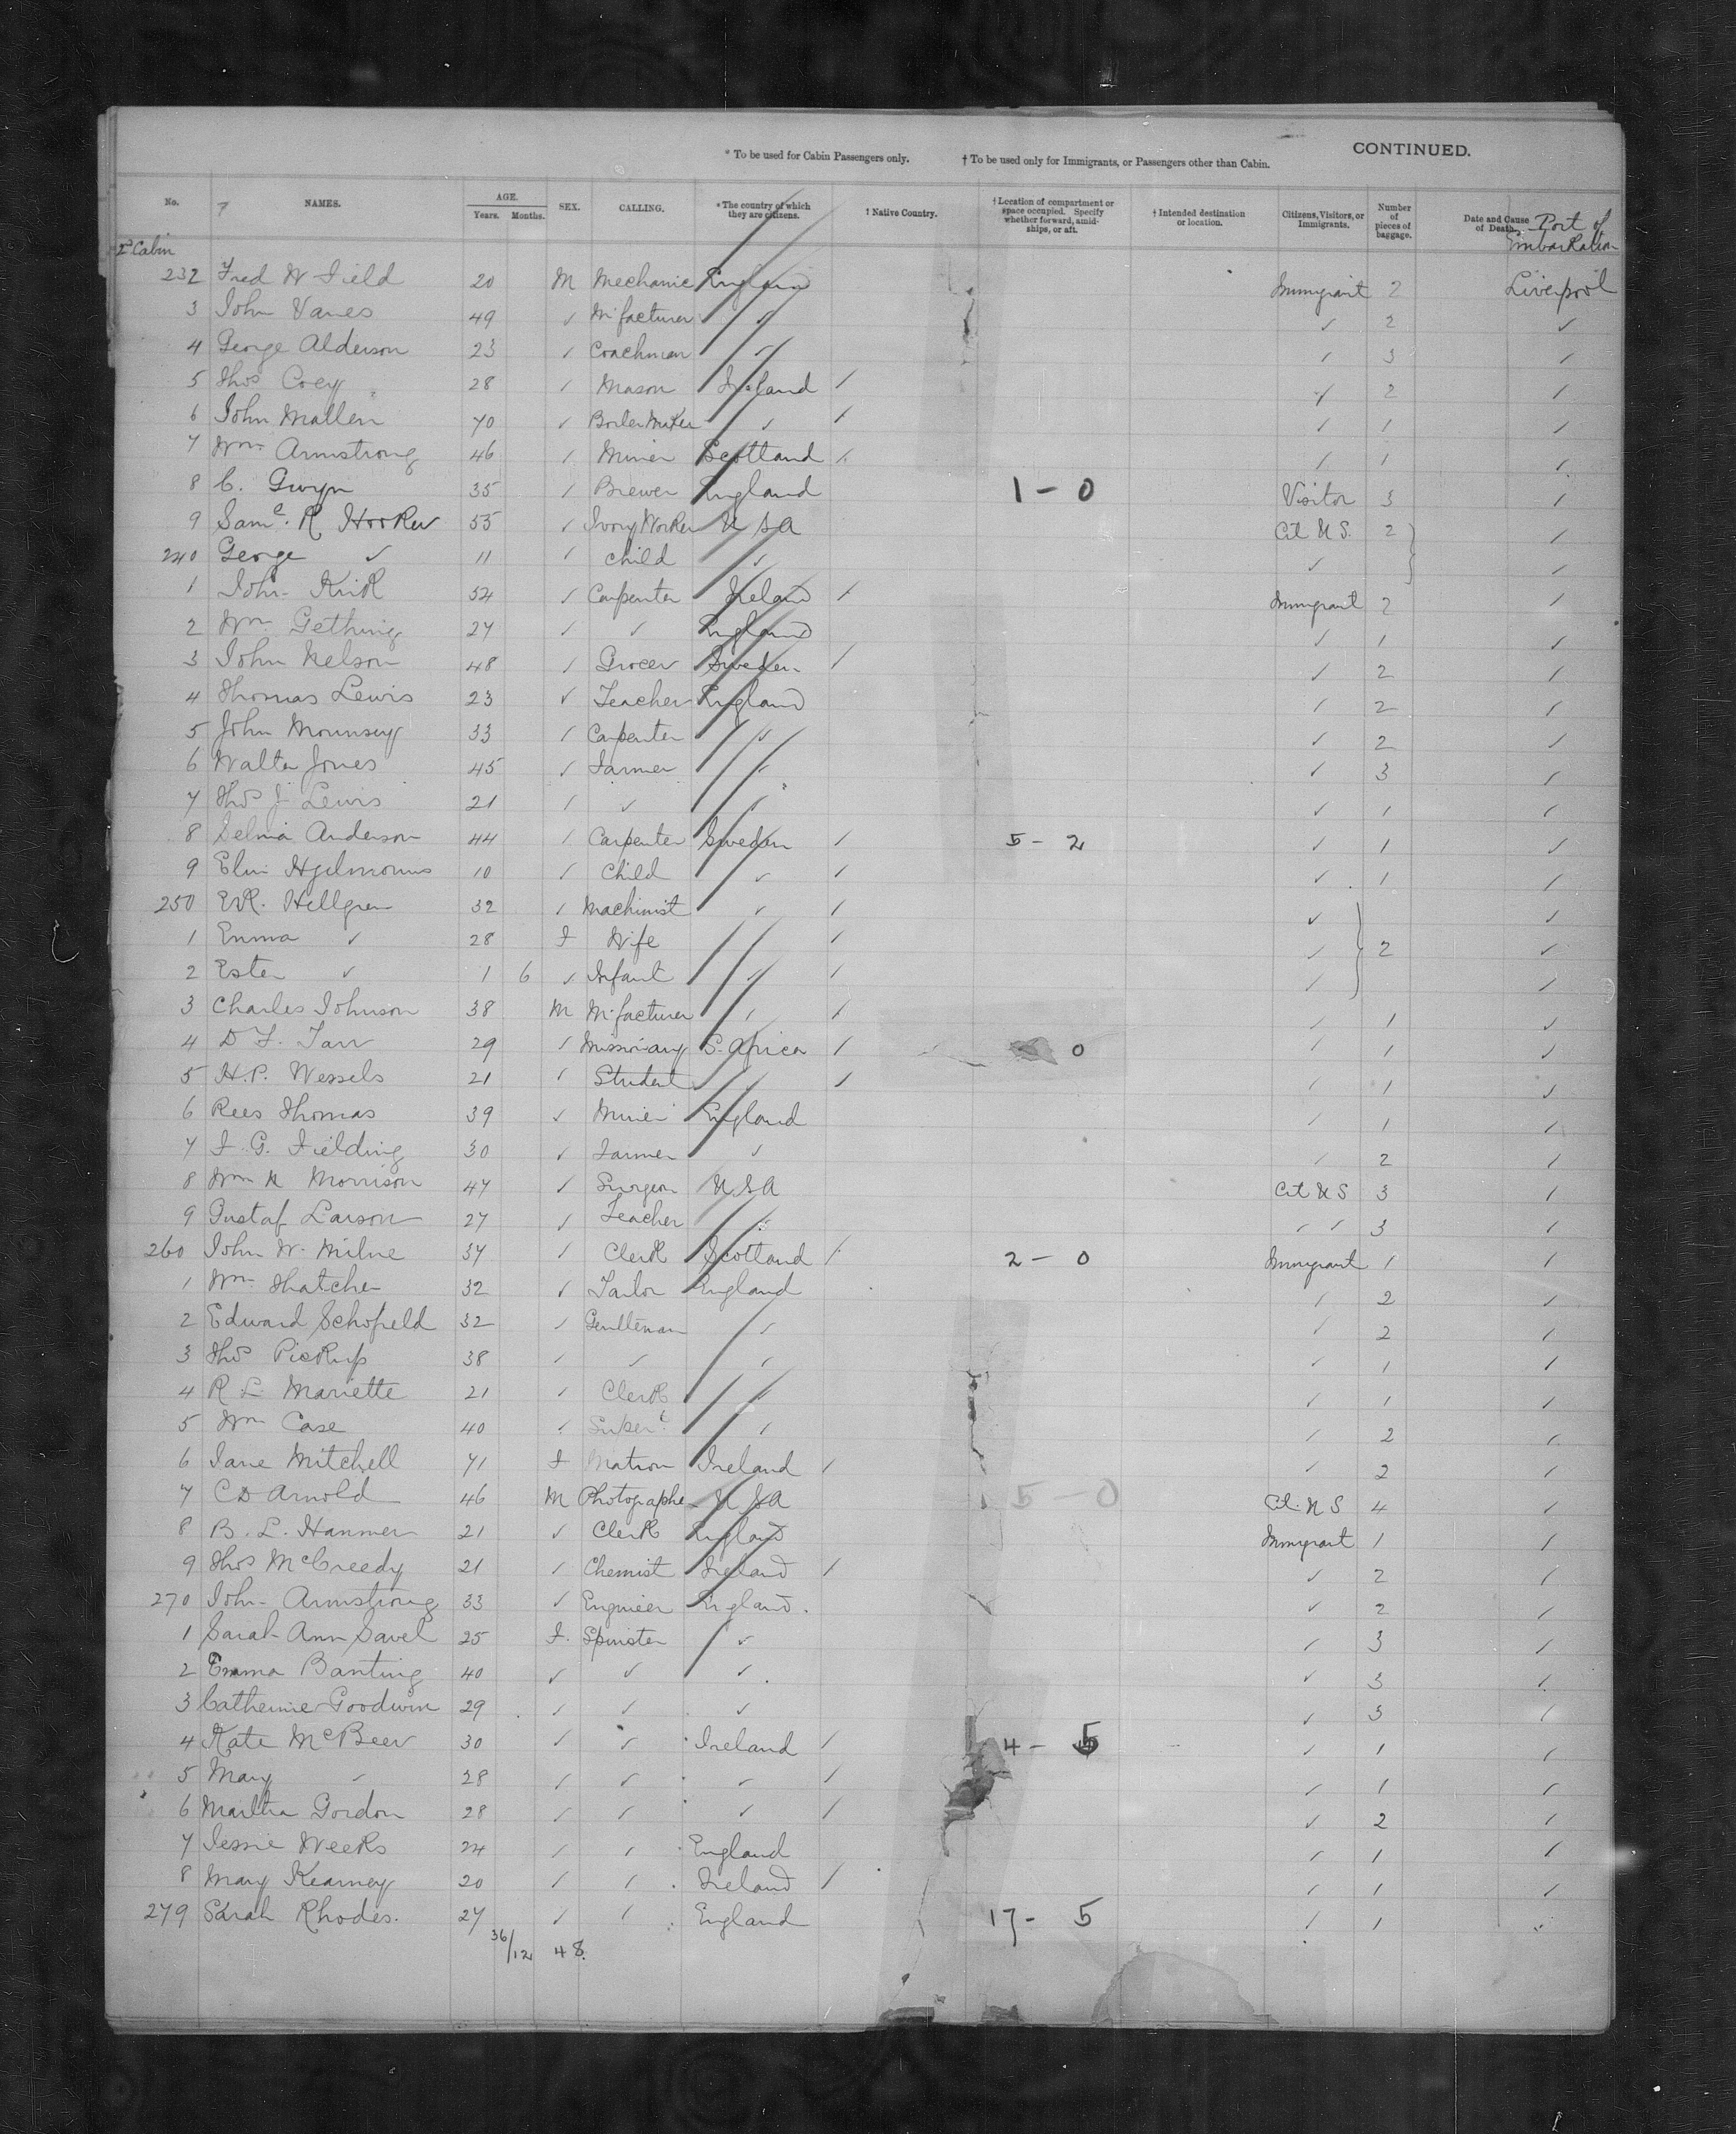 CONTINUED.
* To be used for Cabin Passengers only. † To be used only for Immigrants, or Passengers other than Cabin.
No. NAMES. AGE. Years. Months. SEX. CALLING. * The country of which they are citizens. † Native Country. † Location of compartment or space occupied. Specify whether forward, amidships, or aft. † Intended destination or location. Citizens, Visitors, or Immigrants. Number of pieces of baggage. Date and Cause of Death. Port of Embarkation
2 Cabin
232 Fred W Field 20 M Mechanic England Immigrant 2 Liverpool
3 John Vanes 49 ✓ M'facturer ✓ ✓ 2 ✓
4 George Alderson 23 ✓ Coachman ✓ ✓ 3 ✓
5 Thos Coey 28 ✓ Mason Ireland / ✓ 2 ✓
6 John Mallen 70 ✓ Boiler Maker ✓ / ✓ 1 ✓
7 Wm Armstrong 46 ✓ Miner Scotland / ✓ 1 ✓
8 C. Gwyn 35 ✓ Brewer England 1 - 0 Visitor 3 ✓
9 Saml. R Hooker 55 ✓ Ivory Worker U S A Cit U S. 2 ✓
240 George ✓ 11 ✓ Child ✓ ✓ ✓
1 John Kirk 52 ✓ Carpenter Ireland / Immigrant 2 ✓
2 Wm Gething 27 ✓ ✓ England ✓ 1 ✓
3 John Nelson 48 ✓ Grocer Sweden / ✓ 2 ✓
4 Thomas Lewis 23 ✓ Teacher England ✓ 2 ✓
5 John Mounsey 33 ✓ Carpenter ✓ ✓ 2 ✓
6 Walter Jones 45 ✓ Farmer ✓ ✓ 3 ✓
7 Thos J Lewis 21 ✓ ✓ ✓ ✓ 1 ✓
8 Selma Anderson 44 ✓ Carpenter Sweden / 5 - 2 ✓ 1 ✓
9 Elin 10 ✓ Child ✓ / ✓ 1 ✓
250 Hellgren 32 ✓ Machinist ✓ / ✓ ✓
1 Emma ✓ 28 F Wife / ✓ 2 ✓
2 Ester ✓ 1 6 ✓ Infant ✓ / ✓ ✓
3 Charles Johnson 38 M M'facturer ✓ / ✓ 1 ✓
4 D F. Tarr 29 ✓ Missionary S. Africa / 0 ✓ 1 ✓
5 H.P. Wessels 21 ✓ Student ✓ / ✓ 1 ✓
6 Rees Thomas 39 ✓ Miner England ✓ 1 ✓
7 F. G. Fielding 30 ✓ Farmer ✓ ✓ 2 ✓
8 Wm N Morrison 47 ✓ Surgeon U S A Cit U S 3 ✓
9 Gustaf Larson 27 ✓ Teacher ✓ ✓ ✓ 3 ✓
260 John W. Milne 37 ✓ Clerk Scotland / 2 - 0 Immigrant 1 ✓
1 Wm Thatcher 32 ✓ Tailor England ✓ 2 ✓
2 Edward Schofield 32 ✓ Gentleman ✓ ✓ 2 ✓
3 Thos Pickup 38 ✓ ✓ ✓ ✓ 1 ✓
4 R L Mariette 21 ✓ Clerk ✓ ✓ 1 ✓
5 Wm Case 40 ✓ Supert ✓ ✓ 2 ✓
6 Jane Mitchell 71 F Matron Ireland / ✓ 2 ✓
7 C D Arnold 46 M Photographer U S A 5 - 0 Cit. U S 4 ✓
8 B. L. Hanmer 21 ✓ Clerk England Immigrant 1 ✓
9 Thos McCreedy 21 ✓ Chemist Ireland / ✓ 2 ✓
270 John Armstrong 33 ✓ Engineer England. ✓ 2 ✓
1 Sarah Ann Savel 25 F. Spinster ✓ ✓ 3 ✓
2 Emma Banting 40 ✓ ✓ ✓ ✓ 3 ✓
3 Catherine Goodwin 29 ✓ ✓ ✓ ✓ 3 ✓
4 Kate McBeer 30 ✓ ✓ Ireland / 4 - 5 ✓ 1 ✓
5 Mary ✓ 28 ✓ ✓ ✓ / ✓ 1 ✓
6 Martha Gordon 28 ✓ ✓ ✓ / ✓ 2 ✓
7 Jessie Weeks 24 ✓ ✓ England ✓ 1 ✓
8 Mary Kearney 20 ✓ ✓ Ireland / ✓ 1 ✓
279 Sarah Rhodes. 27 ✓ ✓ England 17 - 5 ✓ 1 ✓
36/12 48.